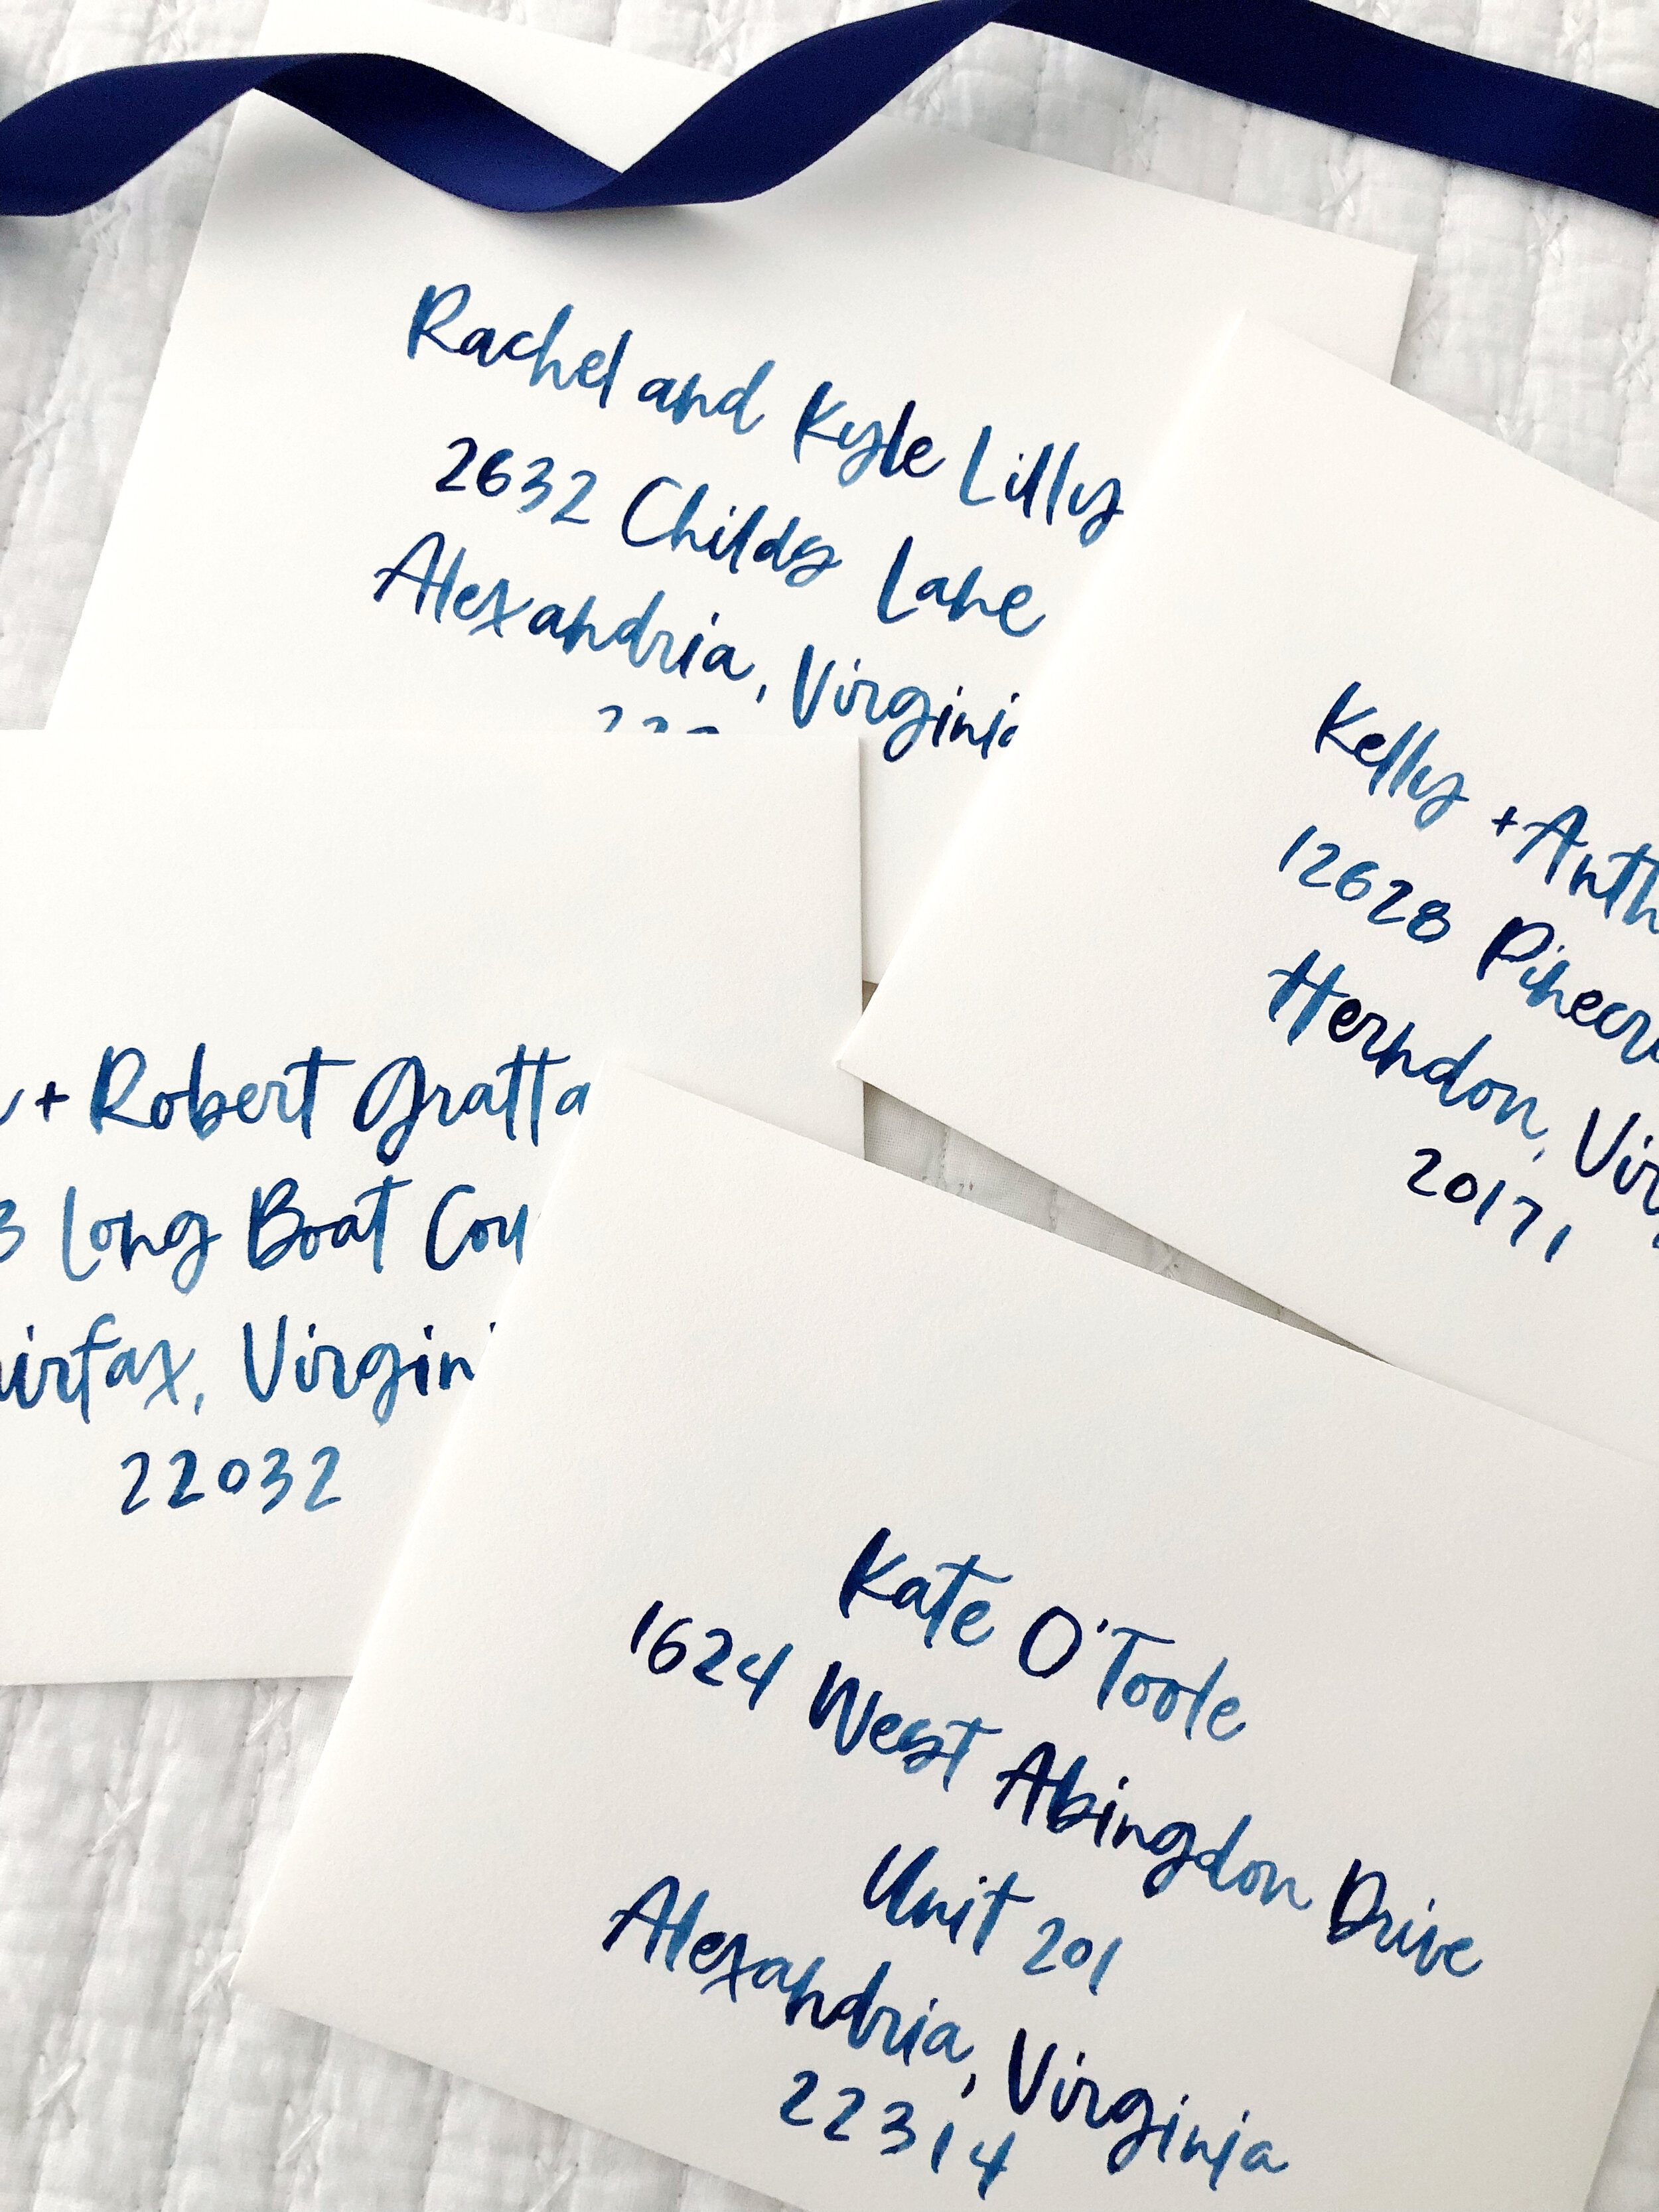 Rachel and Kyle Lilly
2632 Childs Lane
Alexandria, Virginia
Kelly +
12628
Herndon,
20171
+ Robert
Long Boat
22032
Kate O'Toole
1624 West Abingdon Drive
Unit 201
Alexandria, Virginia
22314